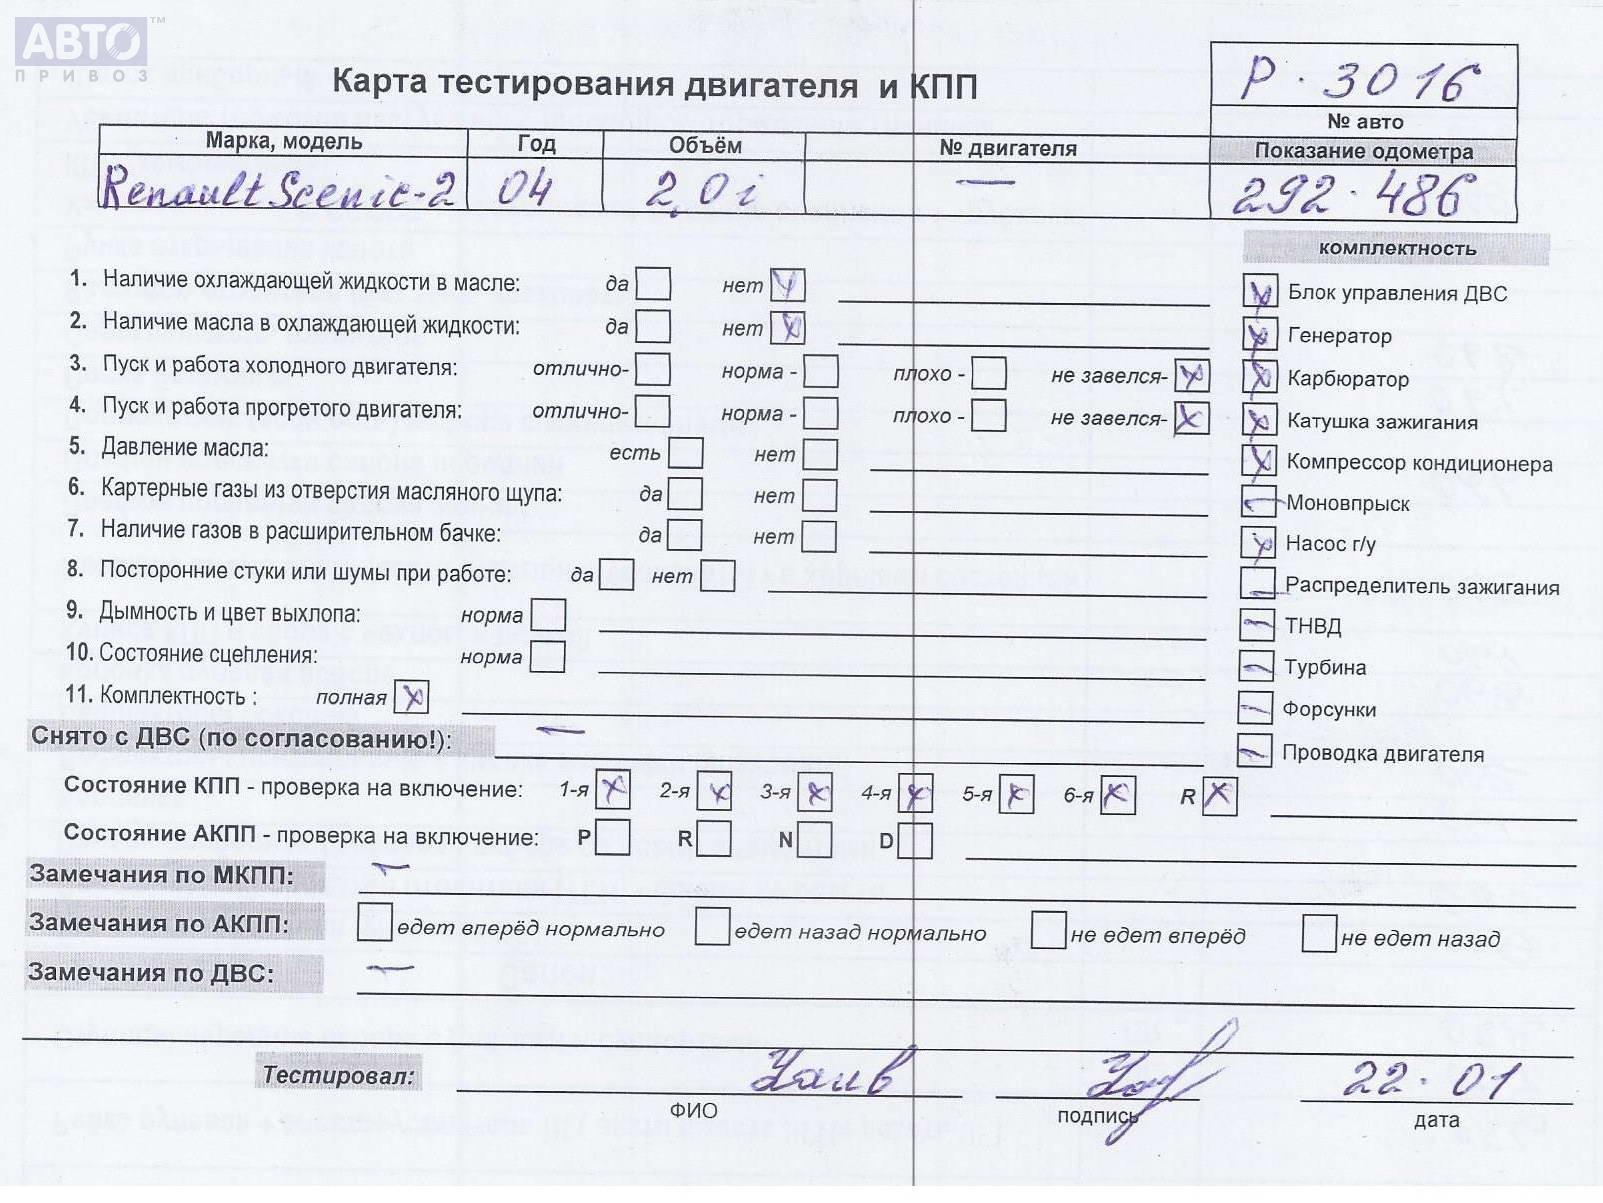 АВТО™
ПРИВОЗ
Карта тестирования двигателя и КПП
Р·3016
№ авто
Марка, модель Год Объём № двигателя Показание одометра
Renault Scenic-2 04 2,0i — 292·486
комплектность
1. Наличие охлаждающей жидкости в масле: да нет
Блок управления ДВС
2. Наличие масла в охлаждающей жидкости: да нет
Генератор
3. Пуск и работа холодного двигателя: отлично- норма - плохо - не завелся-
Карбюратор
4. Пуск и работа прогретого двигателя: отлично- норма - плохо - не завелся-
Катушка зажигания
5. Давление масла: есть нет
Компрессор кондиционера
6. Картерные газы из отверстия масляного щупа: да нет
Моновпрыск
7. Наличие газов в расширительном бачке: да нет
Насос г/у
8. Посторонние стуки или шумы при работе: да нет
Распределитель зажигания
9. Дымность и цвет выхлопа: норма
ТНВД
10. Состояние сцепления: норма
Турбина
11. Комплектность : полная
Форсунки
Снято с ДВС (по согласованию!): —
Проводка двигателя
Состояние КПП - проверка на включение: 1-я 2-я 3-я 4-я 5-я 6-я R
Состояние АКПП - проверка на включение: P R N D
Замечания по МКПП: —
Замечания по АКПП: едет вперёд нормально едет назад нормально не едет вперёд не едет назад
Замечания по ДВС: —
Тестировал: 22·01
ФИО подпись дата